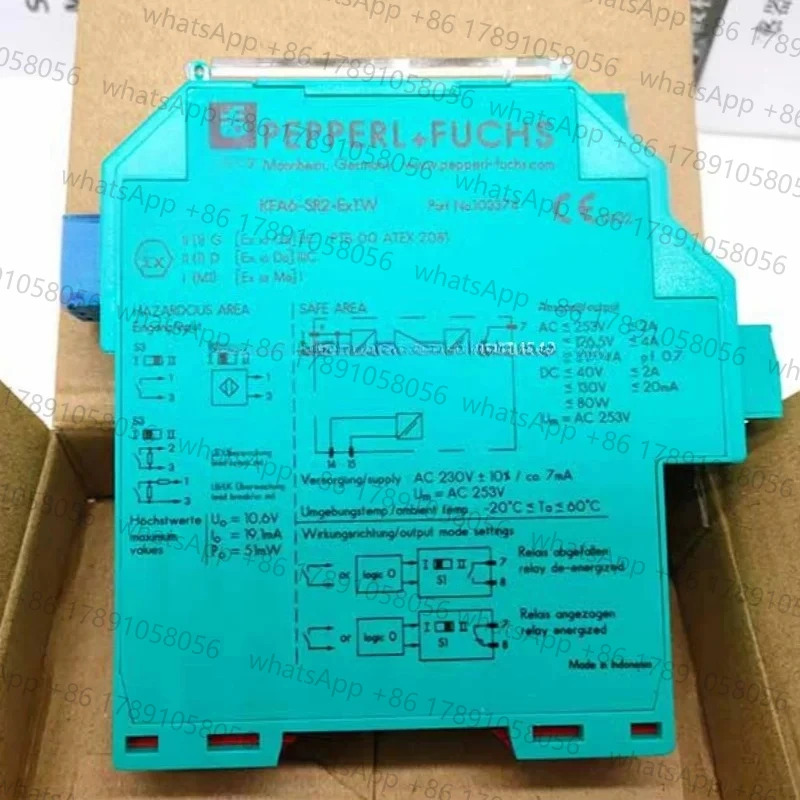 PEPPERL+FUCHS
Mannheim, Germany www.pepperl-fuchs.com
KFA6-SR2-Ex1.W Part No.
CE
II (1) G [Ex ia Ga] PTB 00 ATEX 2081
II (1) D [Ex ia Da] IIIC
I (M1) [Ex ia Ma] I
HAZARDOUS AREA
Eingang/input
SAFE AREA
Ausgang/output
AC ≤ 253V/ ≤ 2A
≤ 126.5V ≤ 4A
DC ≤ 40V ≤ 2A
≤ 130V ≤ 20mA
≤ 80W
Um = AC 253V
S3
I II
1
3
7
S3
I II
2
3
1
3
14 15
Versorgung/supply AC 230V ± 10% / ca. 7mA
Um = AC 253V
Umgebungstemp/ambient temp. -20°C ≤ Ta ≤ 60°C
Höchstwerte
maximum
values
Uo = 10,6V
Io = 19,1mA
Po = 51mW
Wirkungsrichtung/output mode settings
or logic 0 I II S1 7 8
Relais abgefallen
relay de-energized
or logic 0 I II S1 7 8
Relais angezogen
relay energized
Made in Indonesien
whatsApp +86 17891058056